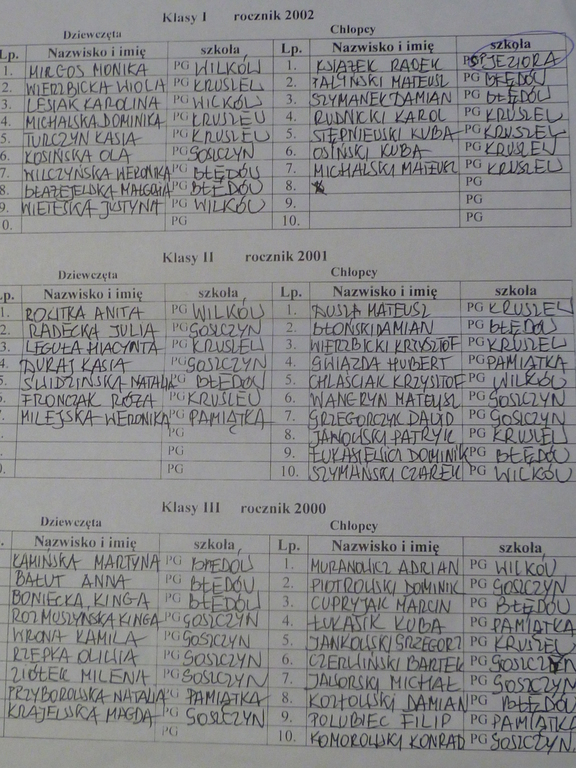 Klasy I rocznik 2002
Dziewczęta Chłopcy
Lp. Nazwisko i imię szkoła Lp. Nazwisko i imię szkoła
1. MIRGOS MONIKA PG WILKÓW 1. KSIĄŻEK RADEK SP JEZIORA
2. WIERZBICKA WIOLA PG KRUSZEW 2. ZALIŃSKI MATEUSZ PG BŁĘDÓW
3. LESIAK KAROLINA PG WILKÓW 3. SZYMANEK DAMIAN PG BŁĘDÓW
4. MICHALSKA DOMINIKA PG KRUSZEW 4. RUDNICKI KAROL PG KRUSZEW
5. TURCZYN KASIA PG KRUSZEW 5. STĘPNIEWSKI KUBA PG KRUSZEW
6. KOSIŃSKA OLA PG GOSZCZYN 6. OSIŃSKI KUBA PG KRUSZEW
7. WILCZYŃSKA WERONIKA PG BŁĘDÓW 7. MICHALSKI MATEUSZ PG KRUSZEW
8. BŁAŻEJEWSKA PG BŁĘDÓW 8. PG
9. WIETESKA JUSTYNA PG WILKÓW 9. PG
0. PG 10. PG
Klasy II rocznik 2001
Dziewczęta Chłopcy
Lp. Nazwisko i imię szkoła Lp. Nazwisko i imię szkoła
1. ROKITKA ANITA PG WILKÓW 1. DUSZA MATEUSZ PG KRUSZEW
2. RADECKA JULIA PG GOSZCZYN 2. BŁOŃSKI DAMIAN PG BŁĘDÓW
3. LEGUTA HIACYNTA PG KRUSZEW 3. WIERZBICKI KRZYSZTOF PG KRUSZEW
4. DURAJ KASIA PG GOSZCZYN 4. GWIAZDA HUBERT PG PAMIĄTKA
5. ŚWIDZIŃSKA NATALIA PG BŁĘDÓW 5. CHLAŚCIAK KRZYSZTOF PG WILKÓW
6. FRONCZAK RÓŻA PG KRUSZEW 6. WANGRYN MATEUSZ PG GOSZCZYN
7. MILEJSKA WERONIKA PG PAMIĄTKA 7. GRZEGORCZYK DAWID PG GOSZCZYN
PG 8. JANOWSKI PATRYK PG KRUSZEW
PG 9. DOMINIK PG BŁĘDÓW
PG 10. SZYMAŃSKI CZAREK PG WILKÓW
Klasy III rocznik 2000
Dziewczęta Chłopcy
Nazwisko i imię szkoła Lp. Nazwisko i imię szkoła
KAMIŃSKA MARTYNA PG BŁĘDÓW 1. MURANOWICZ ADRIAN PG WILKÓW
BAŁUT ANNA PG BŁĘDÓW 2. PIOTROWSKI DOMINIK PG GOSZCZYN
BONIECKA KINGA PG BŁĘDÓW 3. CUPRYJAK MARCIN PG BŁĘDÓW
ROZMUSZYŃSKA KINGA PG GOSZCZYN 4. ŁUKASIK KUBA PG PAMIĄTKA
WRONA KAMILA PG GOSZCZYN 5. JANKOWSKI GRZEGORZ PG KRUSZEW
RZEPKA OLIWIA PG GOSZCZYN 6. CZERWIŃSKI BARTEK PG GOSZCZYN
ZIÓŁEK MILENA PG GOSZCZYN 7. JAWORSKI MICHAŁ PG GOSZCZYN
PRZYBOROWSKA NATALIA PG PAMIĄTKA 8. KOZŁOWSKI DAMIAN PG BŁĘDÓW
KRAJEWSKA MAGDA PG GOSZCZYN 9. POLUBIEC FILIP PG PAMIĄTKA
PG 10. KOMOROWSKI KONRAD PG GOSZCZYN